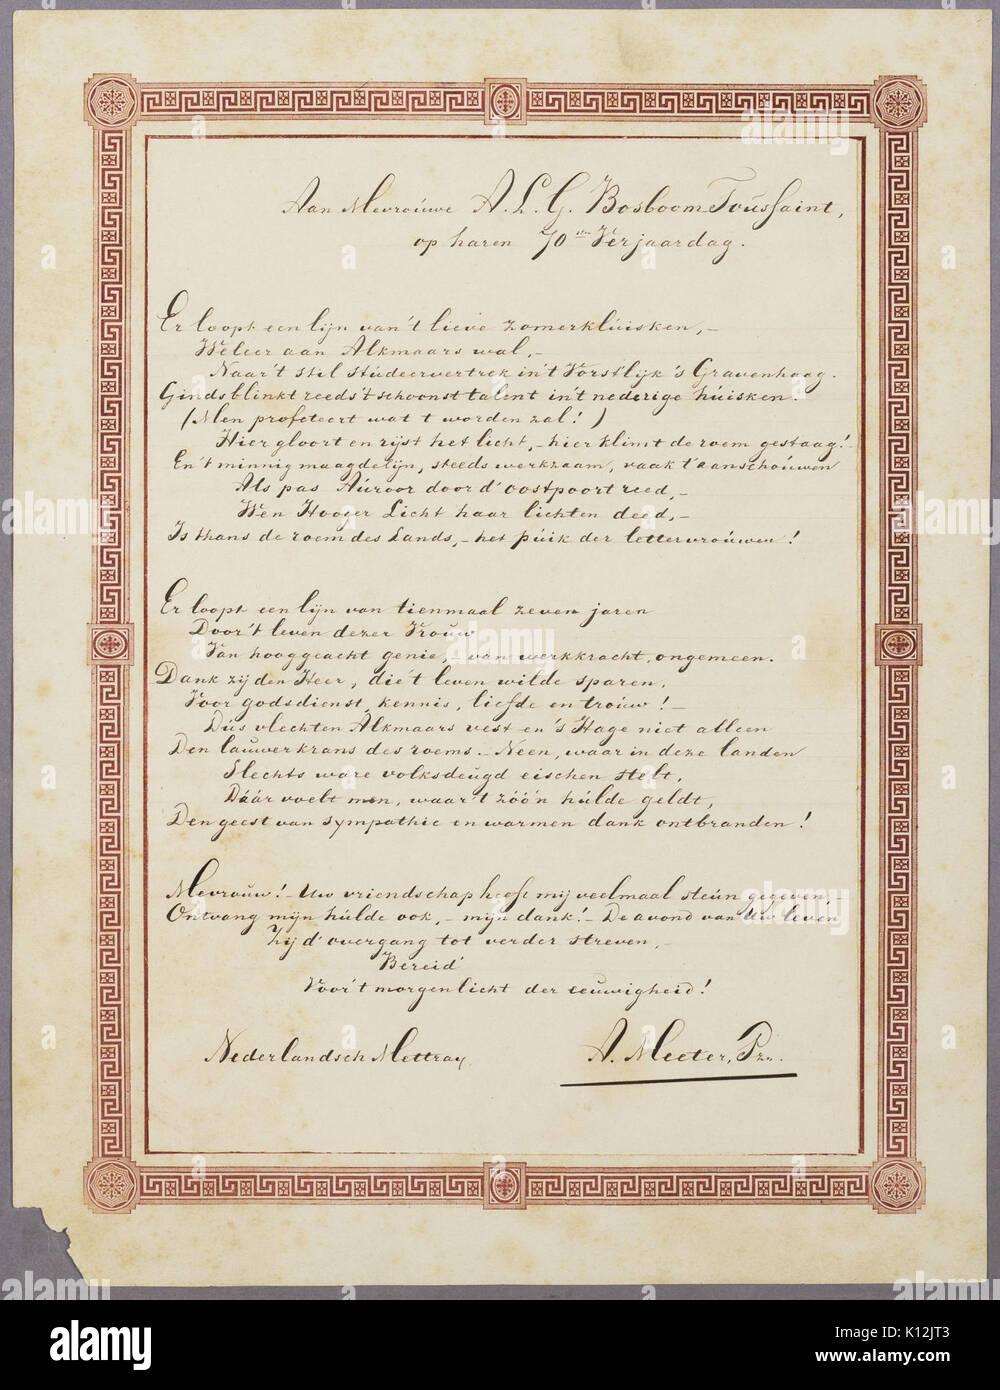 Aan Mevrouwe A. L. G. Bosboom-Toussaint,
op haren 70sten Verjaardag.
Er loopt een lijn van 't lieve zomerkluisken, –
Weleer aan Alkmaars wal, –
Naar 't stil studeervertrek in 't Vorst'lijk 's Gravenhaag.
Ginds blinkt reeds 't schoonst talent in 't nederige huisken.
(Men profeteert wat 't worden zal!)
Hier gloort en rijst het licht, – hier klimt de roem gestaag! –
En 't minnig maagdelijn, steeds werkzaam, vaak t' aanschouwen
Als pas Auroor door d' oostpoort reed, –
Wen Hooger Licht haar lichten deed, –
Is thans de roem des Lands, – het puik der lettervrouwen!
Er loopt een lijn van tienmaal zeven jaren
Door 't leven dezer Vrouw
Van hooggeacht genie, van werkkracht, ongemeen.
Dank zij den Heer, die 't leven wilde sparen,
Voor godsdienst, kennis, liefde en trouw! –
Dus vlechten Alkmaars vest en 's Hage niet alleen
Den lauwerkrans des roems. – Neen, waar in deze landen
Slechts ware volksdeugd eischen stelt,
Dáár voelt men, waar 't zóó'n hulde geldt,
Den geest van sympathie en warmen dank ontbranden!
Mevrouw! – Uw vriendschap heeft mij veelmaal steun gegeven, –
Ontvang mijn hulde ook, – mijn dank! – De avond van Uw leven
Zij d' overgang tot verder streven, –
Bereid
Voor 't morgenlicht der eeuwigheid!
Nederlandsch Mettray. A. Meeter, Pzn.
alamy
www.alamy.com
Image ID: K12JT3